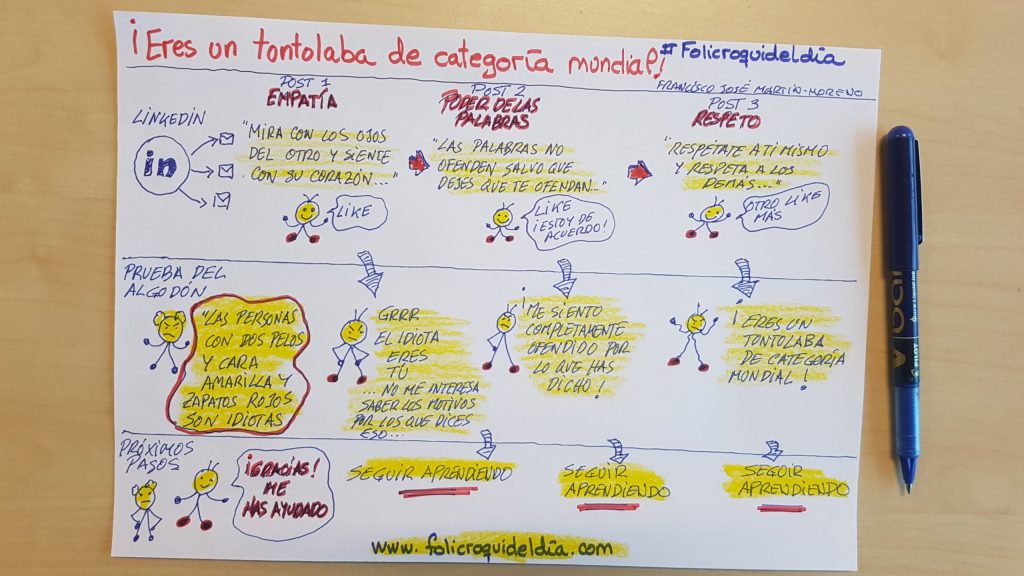 ¡Eres un tontolaba de categoría mundial!
#Folicroquideldía
FRANCISCO JOSÉ MARTÍN-MORENO
LINKEDIN
in
POST 1
EMPATÍA
"MIRA CON LOS OJOS
DEL OTRO Y SIENTE
CON SU CORAZÓN..."
LIKE
POST 2
PODER DE LAS
PALABRAS
"LAS PALABRAS NO
OFENDEN SALVO QUE
DEJES QUE TE OFENDAN..."
LIKE
¡ESTOY DE
ACUERDO!
POST 3
RESPETO
"RESPÉTATE A TI MISMO
Y RESPETA A LOS
DEMÁS..."
OTRO LIKE
MÁS
PRUEBA DEL
ALGODÓN
"LAS PERSONAS
CON DOS PELOS
Y CARA
AMARILLA Y
ZAPATOS ROJOS
SON IDIOTAS
GRRR
EL IDIOTA
ERES
TÚ
...NO ME INTERESA
SABER LOS MOTIVOS
POR LOS QUE DICES
ESO...
¡ME SIENTO
COMPLETAMENTE
OFENDIDO POR
LO QUE HAS
DICHO!
¡ERES UN
TONTOLABA
DE CATEGORÍA
MUNDIAL!
PRÓXIMOS
PASOS
¡GRACIAS!
ME
HAS AYUDADO
SEGUIR APRENDIENDO
SEGUIR
APRENDIENDO
SEGUIR
APRENDIENDO
www.folicroquideldía.com